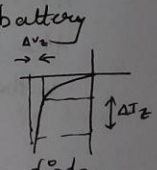 battery
ΔVz
ΔIz